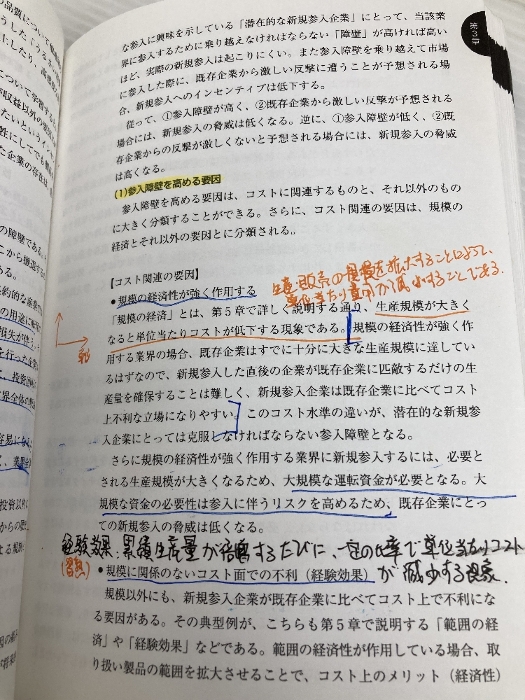 第2章
な参入に興味を示している「潜在的な新規参入企業」にとって、当該業
界に参入するために乗り越えなければならない「障壁」が高ければ高い
ほど、実際の新規参入は起こりにくい。また参入障壁を乗り越えて市場
に参入した際に、既存企業から激しい反撃に遭うことが予想される場
合、新規参入へのインセンティブは低下する。
従って、①参入障壁が高く、②既存企業から激しい反撃が予想される
場合には、新規参入の脅威は低くなる。逆に、①参入障壁が低く、②既
存企業からの反撃が激しくないと予想される場合には、新規参入の脅威
は高くなる。
(1)参入障壁を高める要因
参入障壁を高める要因は、コストに関連するものと、それ以外のもの
に大きく分類することができる。さらに、コスト関連の要因は、規模の
経済とそれ以外の要因とに分類される。
【コスト関連の要因】
生産・販売の規模を拡大することによって、
単位当たり費用が減少することである。
●規模の経済性が強く作用する
「規模の経済」とは、第5章で詳しく説明する通り、生産規模が大きく
なると単位当たりコストが低下する現象である。規模の経済性が強く作
用する業界の場合、既存企業はすでに十分に大きな生産規模に達してい
るはずなので、新規参入した直後の企業が既存企業に匹敵するだけの生
産量を確保することは難しく、新規参入企業は既存企業に比べてコスト
上不利な立場になりやすい。このコスト水準の違いが、潜在的な新規参
入企業にとっては克服しなければならない参入障壁となる。
さらに規模の経済性が強く作用する業界に新規参入するには、必要と
される生産規模が大きくなるため、大規模な運転資金が必要となる。大
規模な資金の必要性は参入に伴うリスクを高めるため、既存企業にとっ
ての新規参入の脅威は低くなる。
経験効果:累積生産量が倍増するたびに、一定の比率で単位当たりコスト
が減少する現象.
(習熟)
●規模に関係のないコスト面での不利(経験効果)
規模以外にも、新規参入企業が既存企業に比べてコスト上で不利にな
る要因がある。その典型例が、こちらも第5章で説明する「範囲の経
済」や「経験効果」などである。範囲の経済性が作用している場合、取
り扱い製品の範囲を拡大させることで、コスト上のメリット(経済性)